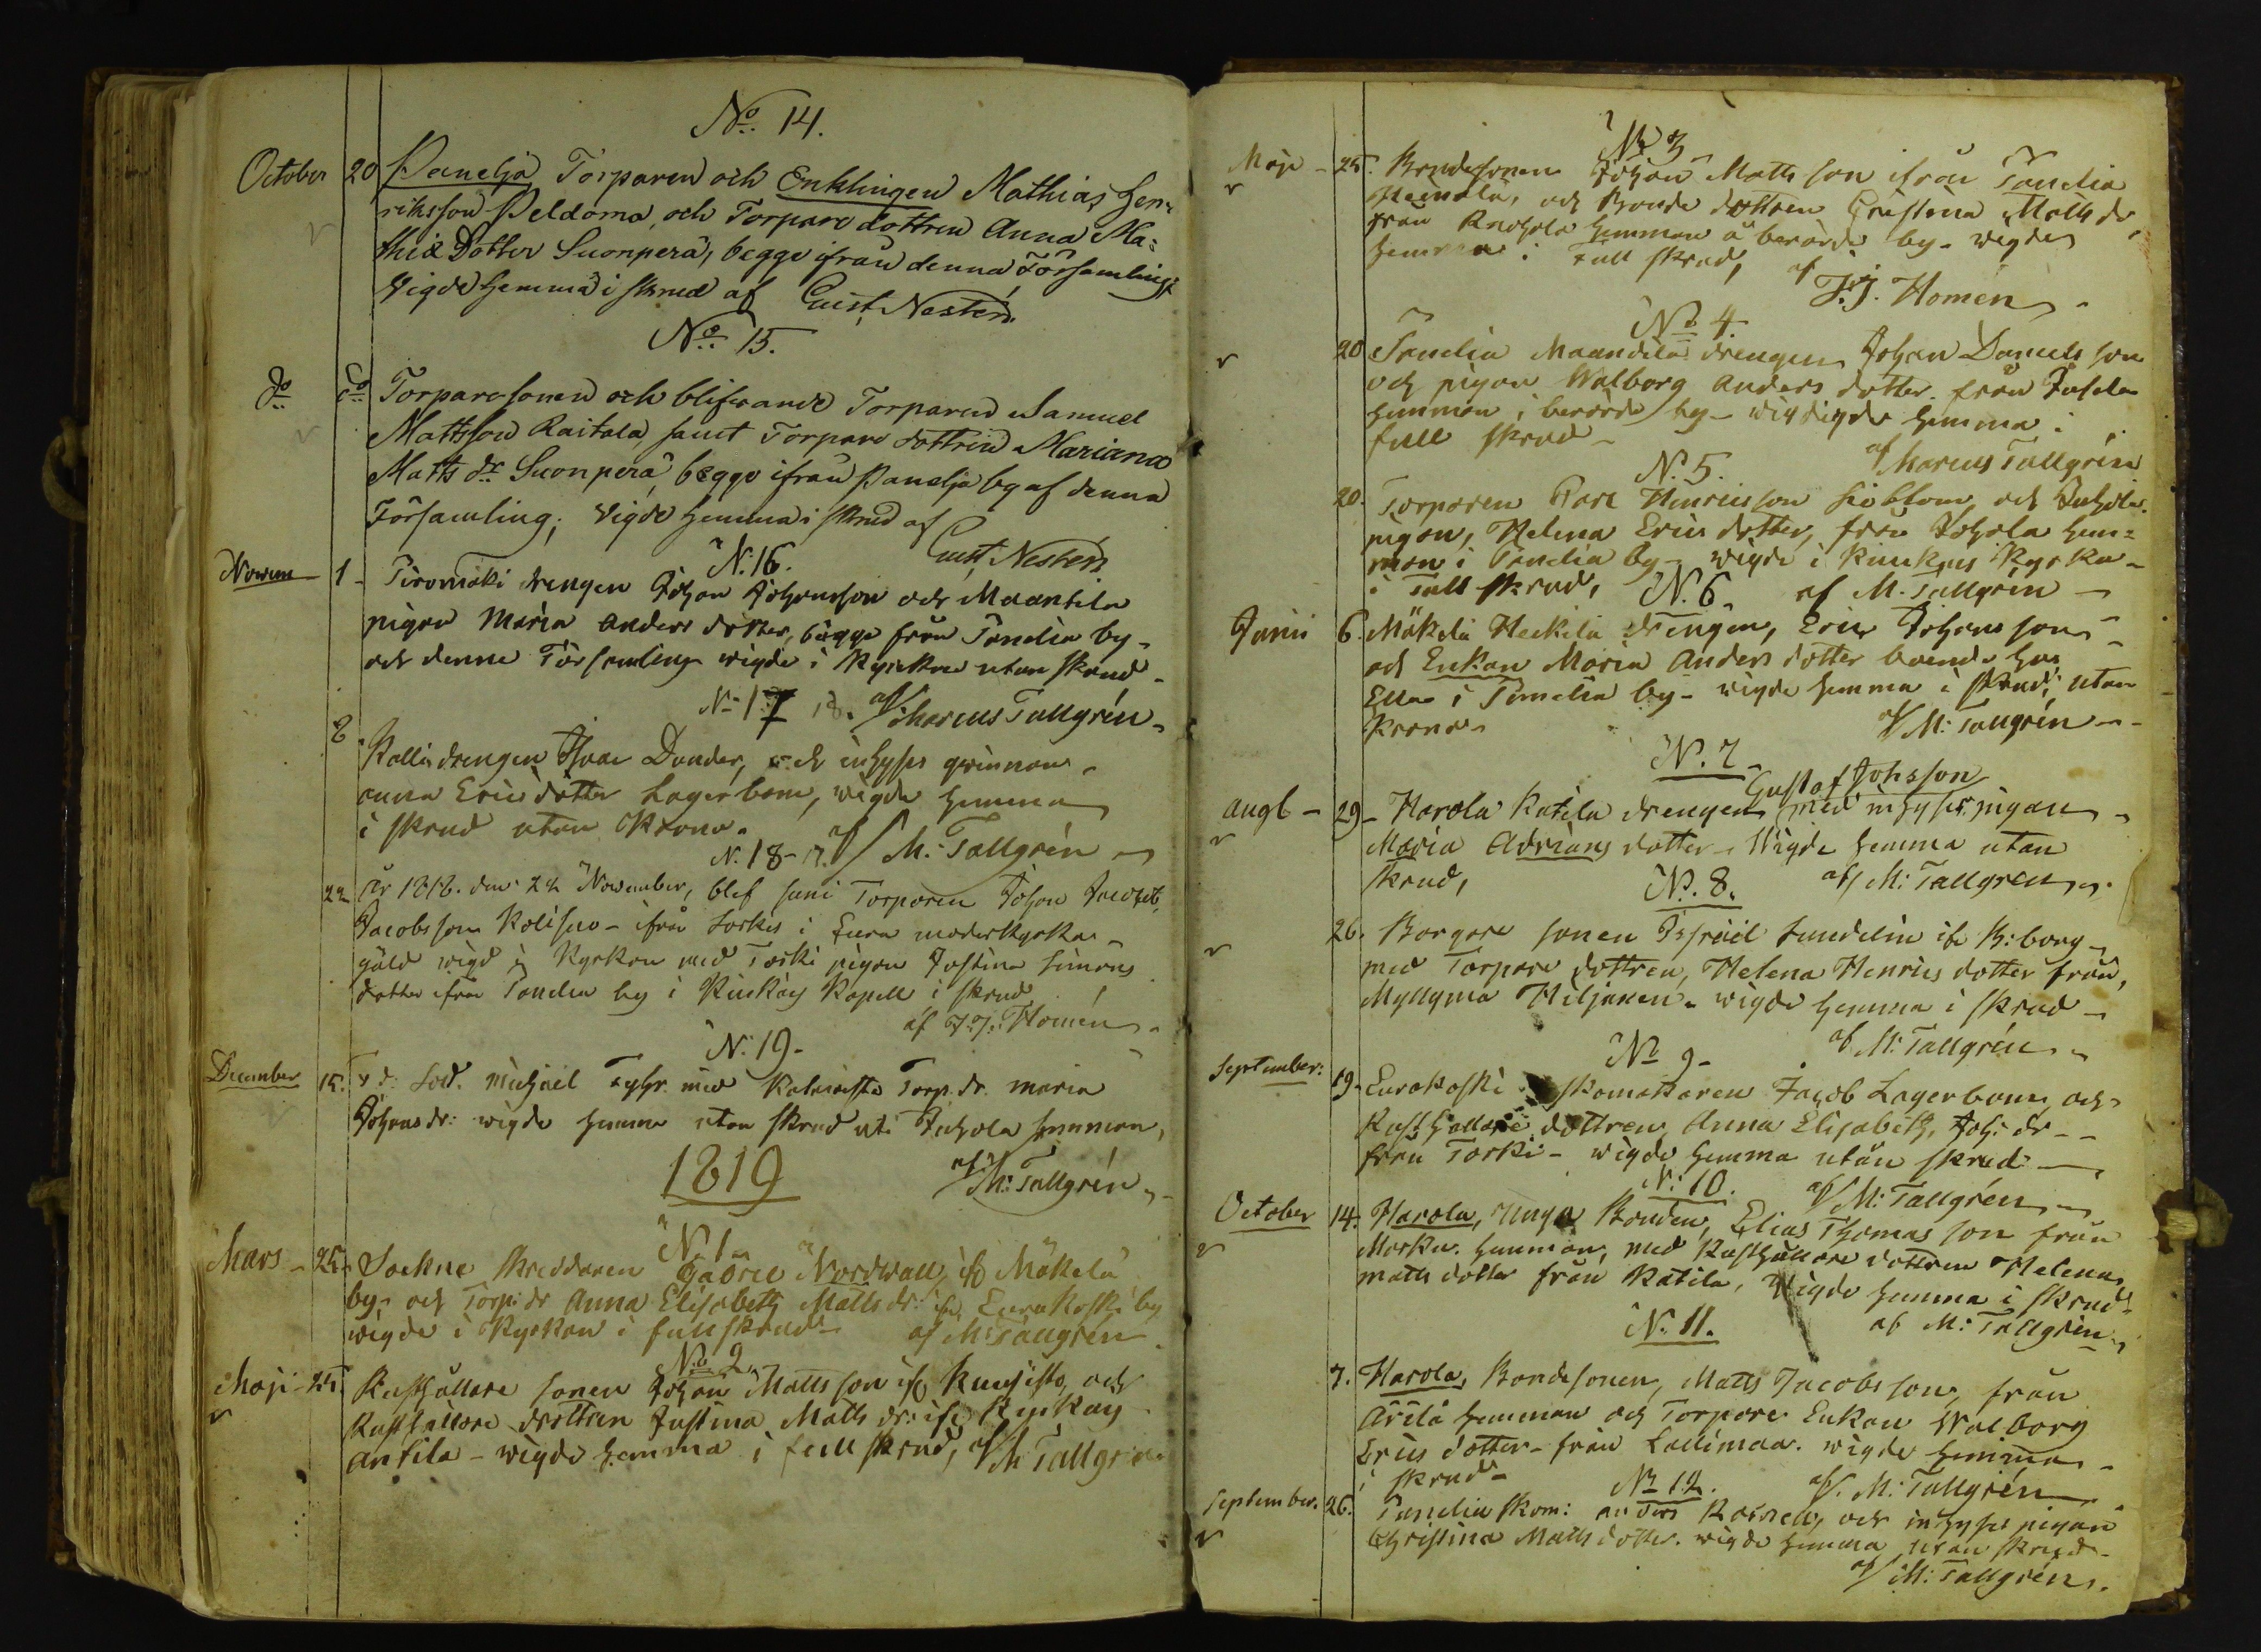 No. 14.
October 20 Panelja Torparen och Enklingen Mathias Hen-
riksson Peldoma, och Torpare dottren Anna Ma-
thiæ Dotter Suonperä, begge ifrån denna Församling;
Vigde hemma i skrud af Gust. Nestén.
No. 15.
do do Torparesonen och blifwande Torparen Samuel
Mattsson Raitala, samt Torpare dottren Mariana
Matts dr Suonperä, begge ifrån Panelja by af denna
Församling; Vigde hemma i skrud af
Gust. Nestén
N. 16.
Novem 1 drengen Johan Johansson och Maantila
pigan Maria Anders dotter, bägge från Panelia by,
och denne Församling wigde i Kyrckan utan skrud
N. 17 18. af Marcus Tallgrén
8 Kalli drengen Isac Dander, och inhyses qwinnan
anna Erics dotter Lagerbom, wigde hemma
i skrud utan Krona.
N. 18- 17. af M: Tallgrén
22 År 1818. den 22 November, blef Torparen Johan Jacob
Jacobsson ifrån i Eura moderkyrka
wigd i Kyrkan med Torki pigan Justina Simons
dotter ifrån Panelia by i Kiukais Kapell i skrud
af J. J. Homén
N. 19-
December 15. Sold. Michael med Torp. dr. maria
Johans dr: wigde hemma utan skrud uti Juhola hemman,
1819 af M: Tallgrén
N. 1
Mars 25 Sockne Skreddaren Gabriel Nordwall, if Mäkelä
by, och Torp. dr Anna Elisabeth Matts dr: ifr Eurakoski by
wigde i Kyrkan i full skrud af M: Tallgrén
No 2
Maji 25 Rusthållare sonen Johan Matts son ifr och
Rusthållare dottren Justina Matts dr: ifr Kiukais
Antila - wigde hemma i full skrud, af M Tallgrén
No 3
Maji 25. Bondesonen Johan Matts son ifrån Panelia
Heinola, och Bonde dottren Christina Matts dr
från hemman å berörde by - wigde
hemma i full skrud, af
J. J. Homén
No 4.
20 Panelia Maandila drengen Johan Daniels son
och pigan Walborg Anders dotter från
hemman i berörde by - hemma i
full skrud
af Marcus Tallgrén
N. 5.
20. Torparen Carl Henricsson och
pigan, Helena Erics dotter, från hem-
man i Panelia by wigde i Kiukais Kyrka
i full skrud, af M. Tallgrén
N. 6
Junii 6. Mäkelä Heikilä drengen, Eric Johans son
och Enkan Maria Anders dotter boende hos
Ella i Panelia by - wigde hemma i skrud, utan
Krona
af M: Tallgrén
N. 7
Gustaf Johsson
augt - 29 Harola Katila drengen med inhyses pigan
Maria Adrians dotter - Wigde hemma utan
Skrud, af M: Tallgrén
N. 8.
26. Borgare sonen Israel Sundelin ifr B:borg
med Torpare dottren, Helena Henrics dotter från
Myllymä Hiljanen - wigde hemma i skrud
af M: Tallgrén
No 9
September: 19 Eurakoski Skomakaren Jacob Lagerbom, och
Rusthållare dottren Anna Elisabeth, Joh: dr
från Torki - wigde hemma utan skrud
af M: Tallgrén
N: 10.
October 14. Harola, unga Bonden, Elias Thomas son från
hemman, med Rusthållare dottren Helena
matts dotter från Katila, Wigde hemma i skrud
af M: Tallgrén
N. 11.
7. Harola, Bondesonen, Matts Jacobs son, från
Äijlä hemman och Torpare Enkan Walborg
Erics dotter - från Lallimaa. wigde hemma
i skrud
af M: Tallgrén
No 12.
September. 26. Panelia Skom: och inhyses pigan
Christina Matts dotter. wigde hemma utan skrud
af M: Tallgrén.